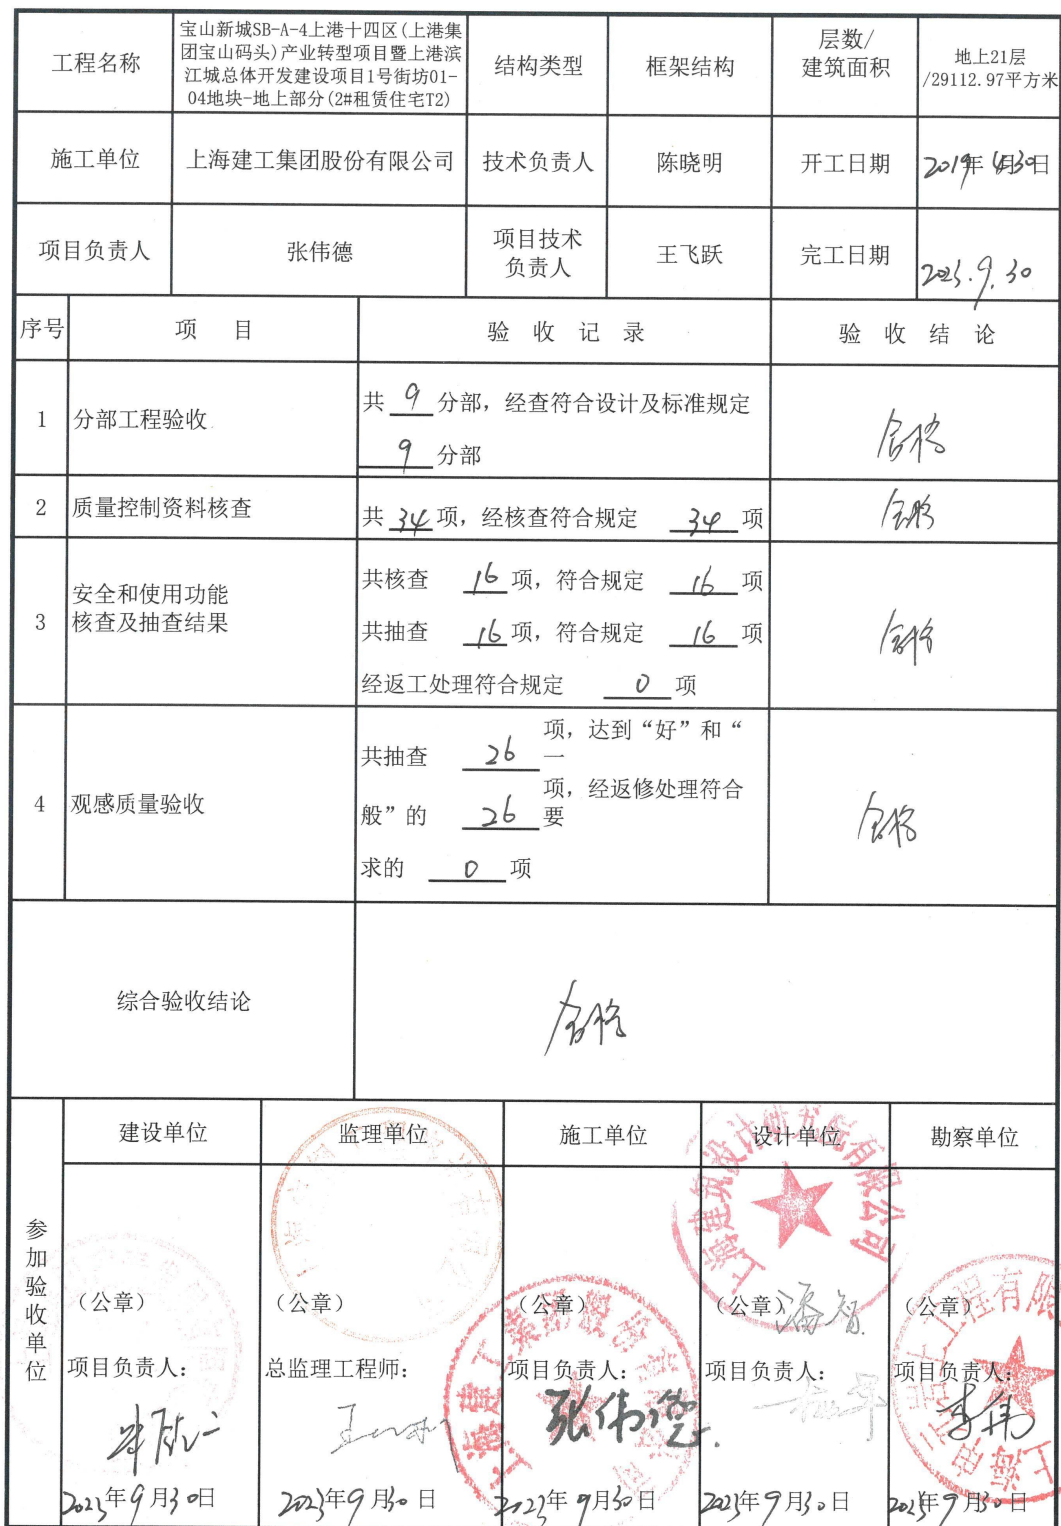 工程名称
宝山新城SB-A-4上港十四区(上港集
团宝山码头)产业转型项目暨上港滨
江城总体开发建设项目1号街坊01-
04地块-地上部分(2#租赁住宅T2)
结构类型
框架结构
层数/
建筑面积
地上21层
/29112.97平方米
施工单位
上海建工集团股份有限公司
技术负责人
陈晓明
开工日期
2019年4月30日
项目负责人
张伟德
项目技术
负责人
王飞跃
完工日期
2023.9.30
序号
项 目
验 收 记 录
验 收 结 论
1
分部工程验收
共 9 分部，经查符合设计及标准规定
9 分部
合格
2
质量控制资料核查
共 34 项，经核查符合规定 34 项
合格
3
安全和使用功能
核查及抽查结果
共核查 16 项，符合规定 16 项
共抽查 16 项，符合规定 16 项
经返工处理符合规定 0 项
合格
4
观感质量验收
共抽查 26 项，达到“好”和“一
般”的 26 项，经返修处理符合要
求的 0 项
合格
综合验收结论
合格
参加验收单位
建设单位
监理单位
施工单位
设计单位
勘察单位
（公章）
（公章）
（公章）
（公章）
（公章）
项目负责人：
总监理工程师：
项目负责人：
项目负责人：
项目负责人：
张伟德
潘智
李伟
2023年9月30日
2023年9月30日
2023年9月30日
2023年9月30日
2023年9月30日
上海建工集团股份有限公司
上海建筑设计研究院有限公司